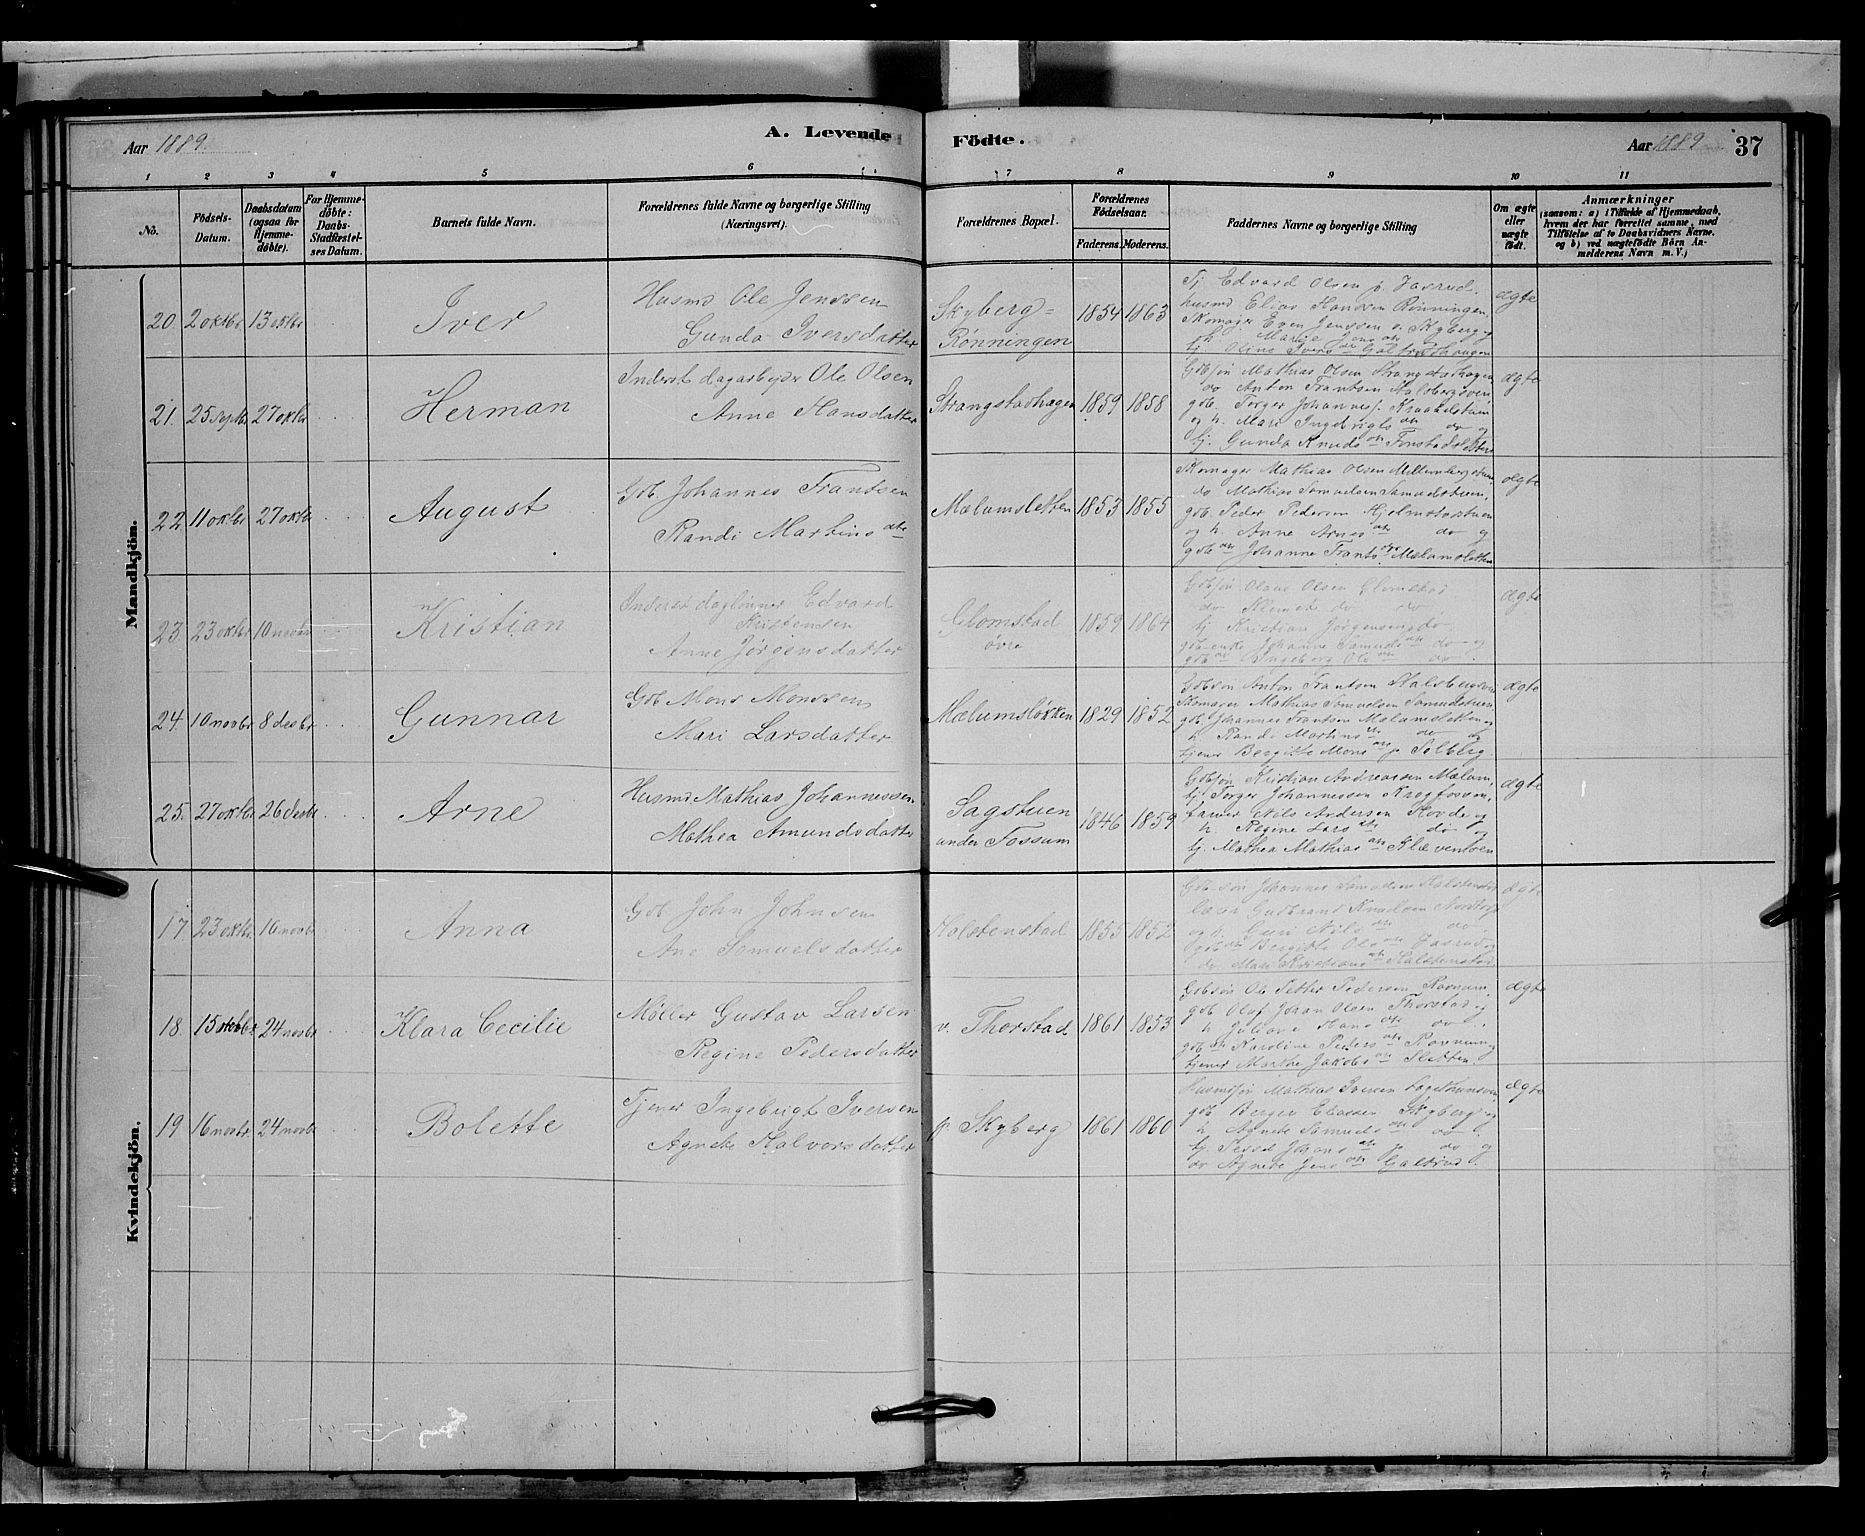 Aar 1889.
A. Levende
Födte.
Aar 1889
37
1 2 3 4 5 6 7 8 9 10 11
No.
Födsels-
Datum.
Daabsdatum
(ogsaa for
Hjemme-
döbte).
For Hjemme-
döbte:
Daabs-
Stadfæstel-
ses Datum.
Barnets fulde Navn.
Forældrenes fulde Navne og borgerlige Stilling
(Næringsvei).
Forældrenes Bopæl.
Forældrenes
Födselsaar.
Faderens. Moderens.
Faddernes Navne og borgerlige Stilling
Om ægte
eller
uægte
födt.
Anmærkninger
(saasom: a) i Tilfælde af Hjemmedaab,
hvem der har forrettet samme, med
Tilföielse af to Daabsvidners Navne.
og b) ved uægtefödte Börn An-
melderens Navn m. V.)
Mandkjön.
20. 2 oktbr 13 oktbr
Iver
Husmd Ole Jenssen
Gunda Iversdatter
Skyberg=
Rønningen
1854 1863
Tj. Edvard Olsen p.
husmd Elias Hansen Rønningen,
Skomager Even Jenssen Skyberg og
ægte
21. 25 septbr 27 oktbr
Herman
Inderst dagarbeyder Ole Olsen
Anne Hansdatter
Strangstadhagen
1859 1858
Gdbsøn Mathias Olsen Strangstadhagen,
do Anton Frantsen
gdb. Torger Johannes.
og h. Mari Ingebrigts dtr do og
tj. Gunda Knuds dtr
ægte
22 11 oktbr 27 oktbr
August
Gdb. Johannes Frantsen
Randi Martins dtr
Mælumsletten
1853 1855
Skomager Mathias Olsen
do Mathias Samuelsen Samuelstuen,
gdb. Peder Pedersen
og h. Anne Arnes dtr do og
gdb dtr Johanne Frants dtr Mælumsletten
ægte
23. 23 oktbr 10 novbr
Kristian
Inderst daglønner Edvard
Kristensen
Anne Jørgensdatter
Glomstad
øvre
1859 1864
Gdbsøn Olaus Olsen Glomstad
do do do
tj. Kristian Jørgensen do
gdb.enke Johanne Samuels dtr do og
gdb dtr Ingeborg Ols dtr do.
ægte
24. 10 novbr 8 desbr
Gunnar
Gdb Mons Monssen
Mari Larsdatter
Mælumsløkken
1829 1852
Gdbsøn Anton Frantsen
Skomager Mathias Samuelsen Samuelstuen
gdb. Johannes Frantsen Mælumsletten og
h. Randi Martins dtr do og
tjener Bergitte Mons dtr p. Solberg
ægte
25. 27 oktbr 26 desbr
Arne
Husmd Mathias Johannessen
Mathea Amundsdatter
Sagstuen
under Fossum
1846 1859
Gdbsøn Kristian Andreassen Mælum,
tj. Torger Johannessen
farver Nils Andersen Hovde og
h. Regine Lars dtr do og
tj. Mathea Mathias dtr
ægte
Kvindekjön.
17. 23 oktbr 16 novbr
Anna
Gdb John Johnsen
Ane Samuelsdatter
Holstenstad
1855 1852
Gdb.søn Johannes Samuelsen
lærer Gudbrand Knudsen
og h. Guri Nils dtr do,
gdb dtr Bergitte Ols dtr
do Mari Kristians dtr
ægte
18. 15 24 novbr
Klara Cecilie
Møller Gustav Larsen
Regine Pedersdatter
v. Thorstad.
1861 1853
Gdbsøn Ole Petter Pedersen
gdb Olaf Johan Olsen Thorstad og
h. Hans dtr do.
gdb dtr Karoline Peders dtr
tjener Marthe Jakobs dtr Sletten.
ægte
19 16 novbr. 24 novbr
Bolette
Tjener Ingebrigt Iversen
Agnete Halvorsdatter
p Skyberg
1861 1860
Husmdsøn Mathias Iversen
gdb. Berger Eliassen Skyberg og
h. Agnete Samuels dtr do
tj. Johans dtr p. do og
do Agnete Jens dtr
ægte